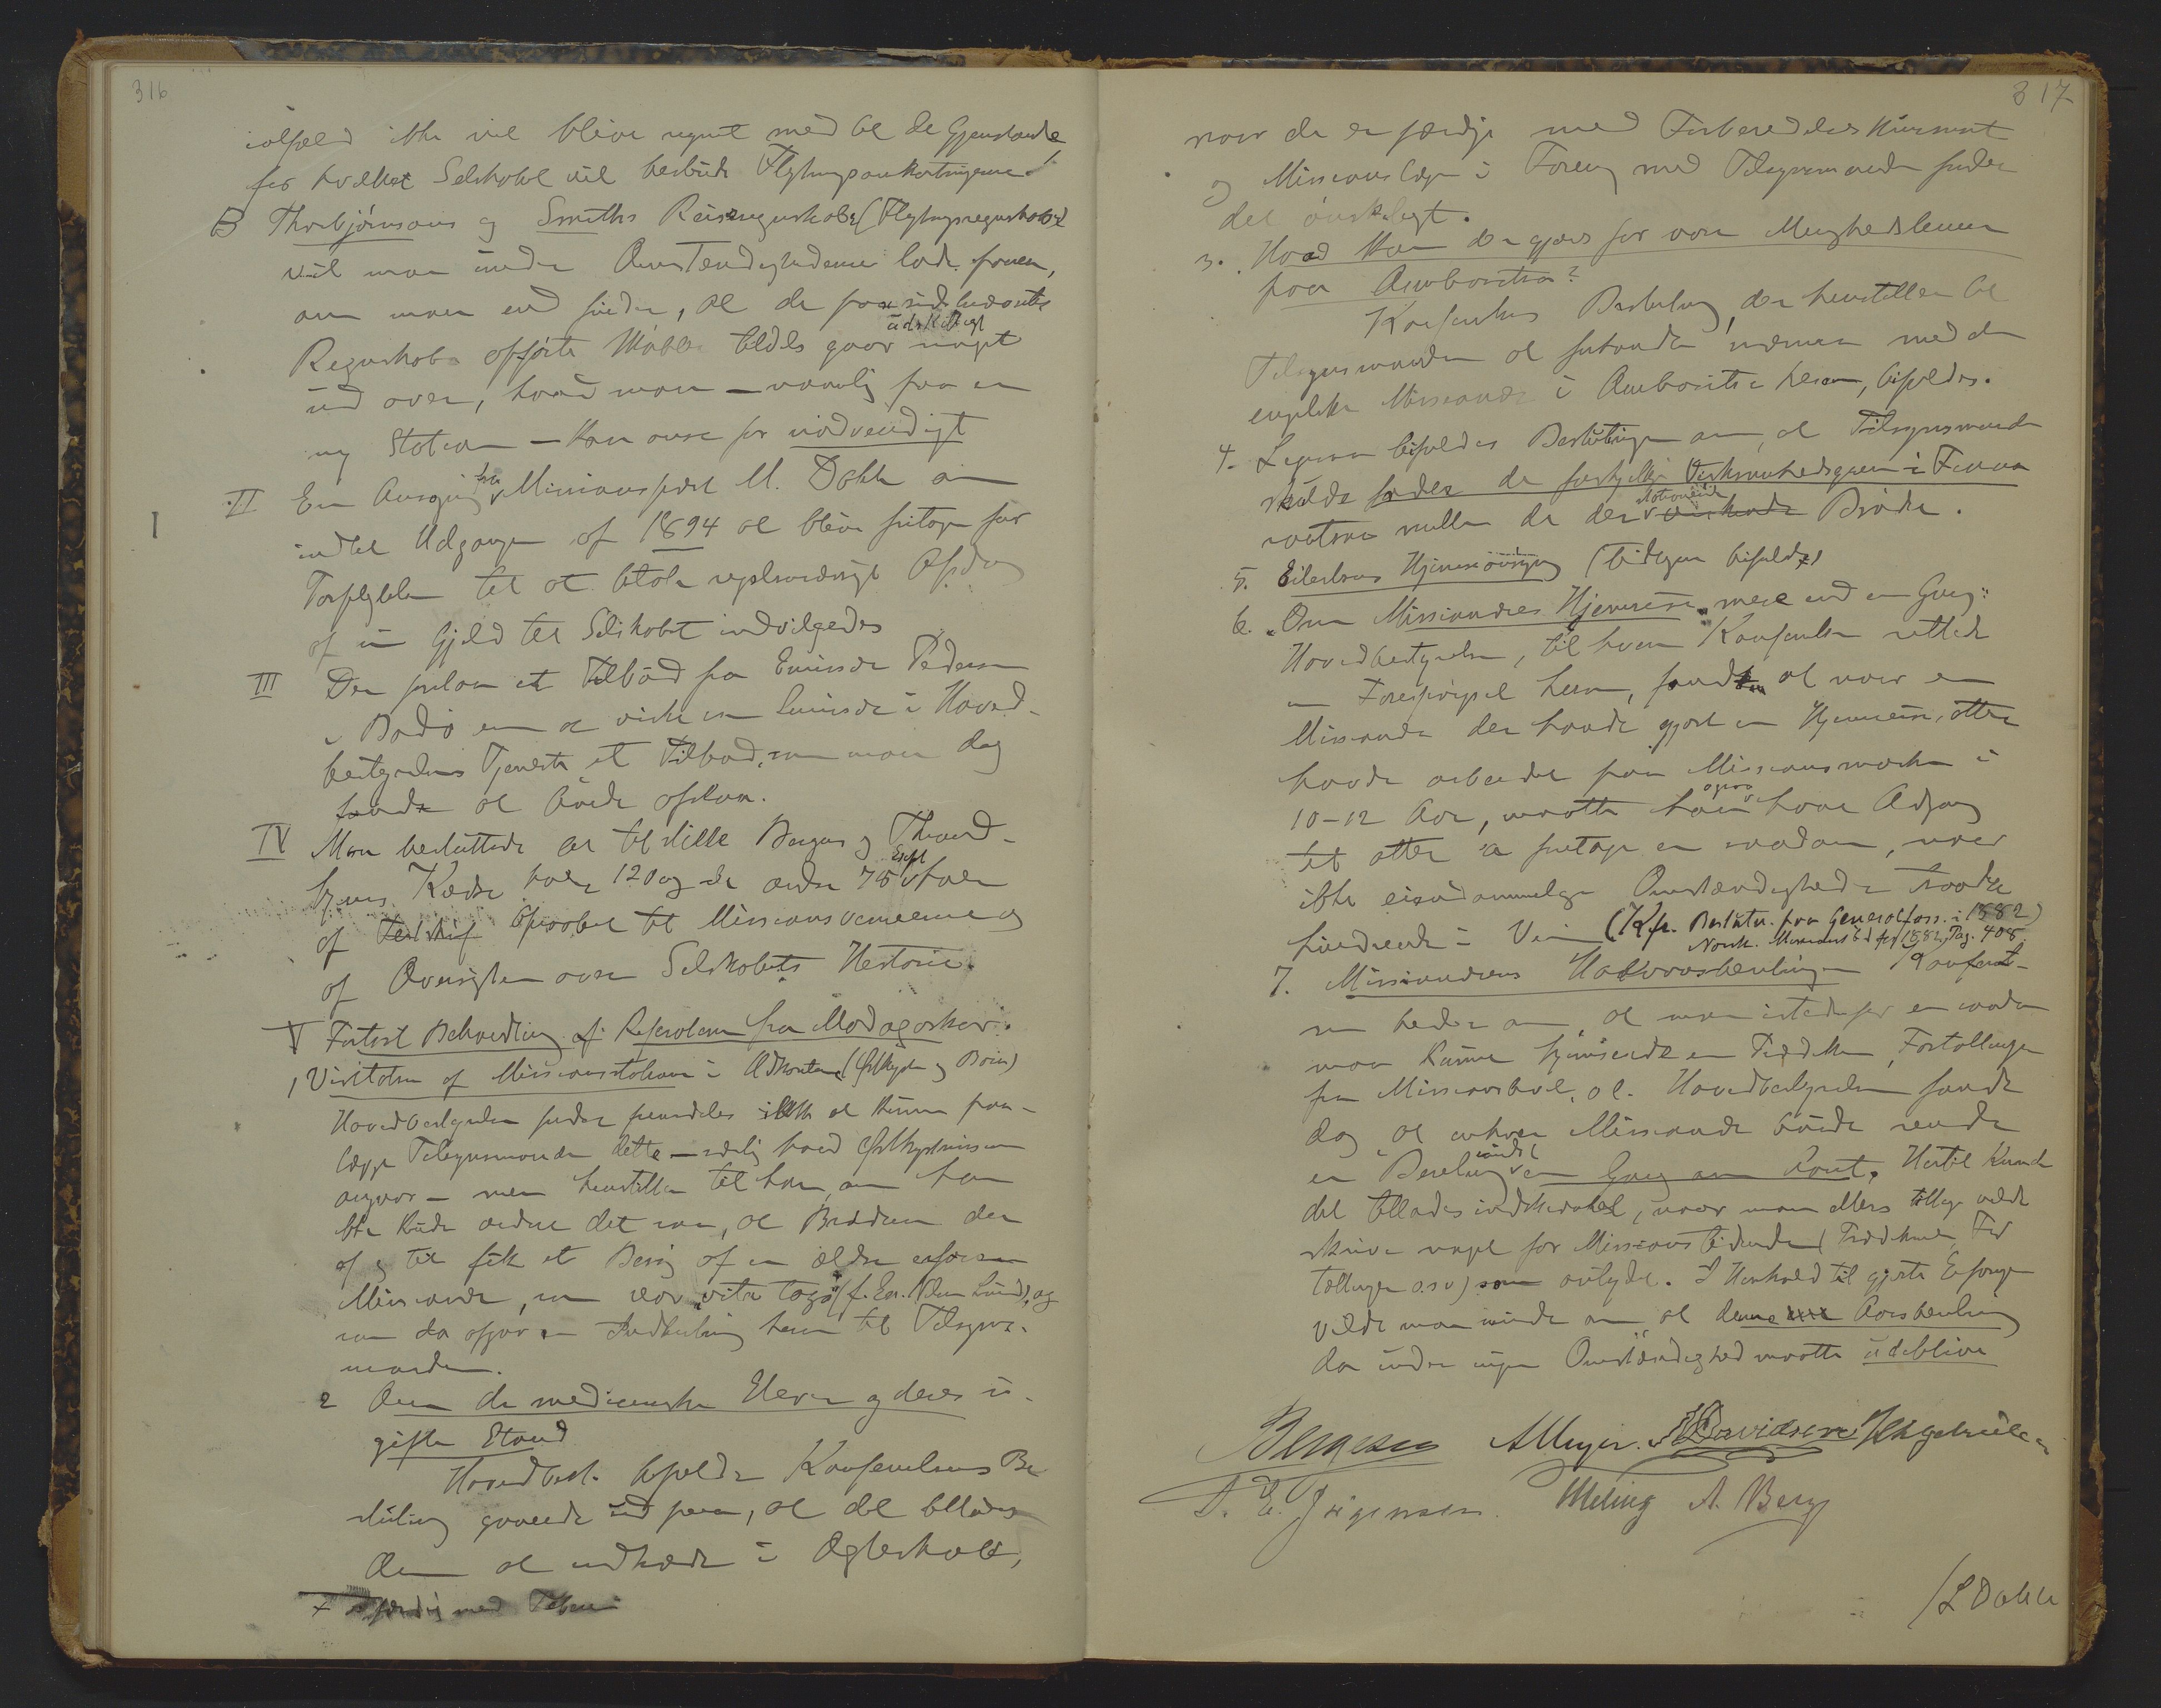 316
ialfald ikke vil blive regnet med til de Gjenstande
for hvilket Selskabet vil bestride Flytningsomkostningerne
B Thorbjörnsens og Smiths Reiseregnskaber (Flytningsregnskaber)
vil man under Omstændighederne lade passere,
om man end finder, at de paa
Regnskabe opförte Möbler tildels gaar udskilligt noget
ud over, hvad man – navnlig paa en
ny Station – kan anse for nödvendigt
II En Ansögning fra Missionsprest M. Dahle om
indtil Udgangen af 1894 at blive fritagen for
Forpligtelsen til at betale regelmæssigt Afdrag
af sin Gjæld til Selskabet indvilgedes
III Der forelaa et Tilbud fra Emissær Pedersen
i Bodö om at virke som Emissær i Hoved-
bestyrelsens Tjeneste et Tilbud, som man dog
fandt at burde afslaa.
IV Man besluttede at tilstille Bergens og Thrond-
hjems Kredse hver 120 og de andre 75 Expl hver
af Opraabet til Missionsvennerne og
af Oversigten over Selskabets Historie.
V Fortsat Behandling af Referaterne fra Madagaskar.
1, Visitatsen af Missionsstationerne i Udkanterne (Östkysten og Bara)
Hovedbestyrelsen finder fremdeles ikke at kunne paa-
lægge Tilsynsmanden dette – særlig hvad Östkystmissionen
angaar – men henstiller til ham, om han
ikke kunde ordne det saa, at Brödrene der
af og til fik et Besög af en ældre erfaren
Missionær, som var "vita tozo" (f. Ex. Lund), og
som da afgav en Indberetning herom til Tilsyns-
manden.
2 Om de medicinske Elever og deres u-
gifte Stand
Hovedbest. bifaldt Konferentsens Be-
slutning gaaende ud paa, at det tillades
dem at indtræde i Ægteskab,
+ færdig med
317
naar de er færdige med Forberedelseskurset
og Missionslægen i Forening med Tilsynsmanden finder
det önskeligt.
3. Hvad kan der gjöres for vore Menighedslemmer
paa Ambositra?
Konferentsens Beslutning, der henstiller til
Tilsynsmanden at forhandle nærmere med den
engelske Missionær i Ambositra herom, bifaldes.
4. Ligesaa bifaldes Beslutningen om, at Tilsynsmanden
skulde fordele de forskjellige Virksomhedsgrene i Tanana
rivo mellem de der stationerede Brödre.
5. Eilertsens Hjemsöring (tidligere bifaldt)
6. "Om Missionærers Hjemreise mere end en Gang":
Hovedbestyrelsen, til hvem Konferentsen rettede
en Forespörgsel herom, fandt at naar en
Missionær der havde gjort en Hjemreise, atter
havde arbeidet paa Missionsmarken i
10–12 Aar, maatte han ogsaa have Adgang
til atter at foretage en saadan, naar
ikke eiendommelige Omstændigheder traadte
hindrende i Veien (Kfr. Beslutn. paa Generalfors. i 1882)
Norsk Missionstid. for 1882, Pag. 408
7. Missionærens Halvaarsberetninger Konferent-
sen beder om, at man istedenfor en saadan
maa kunne hjemsende en Prædiken, Fortællinger
fra Missionslivet, ol. Hovedbestyrelsen fandt
dog at enhver Missionær burde sende
en Beretning mindst en Gang om Aaret. Hertil kunde
det tillades indskrænket, naar man ellers tillige vilde
skrive noget for Missionstidende (Prædikener, For
tællinger o.s.v) som antydet. I Henhold til gjorte Erfaringer
vilde man minde om, at denne Aarsberetning
da under ingen Omstændighed maatte udeblive
Bergesen AMeyer. Davidsen
T. E. Jörgensen. Meling A. Berg
/L Dahle